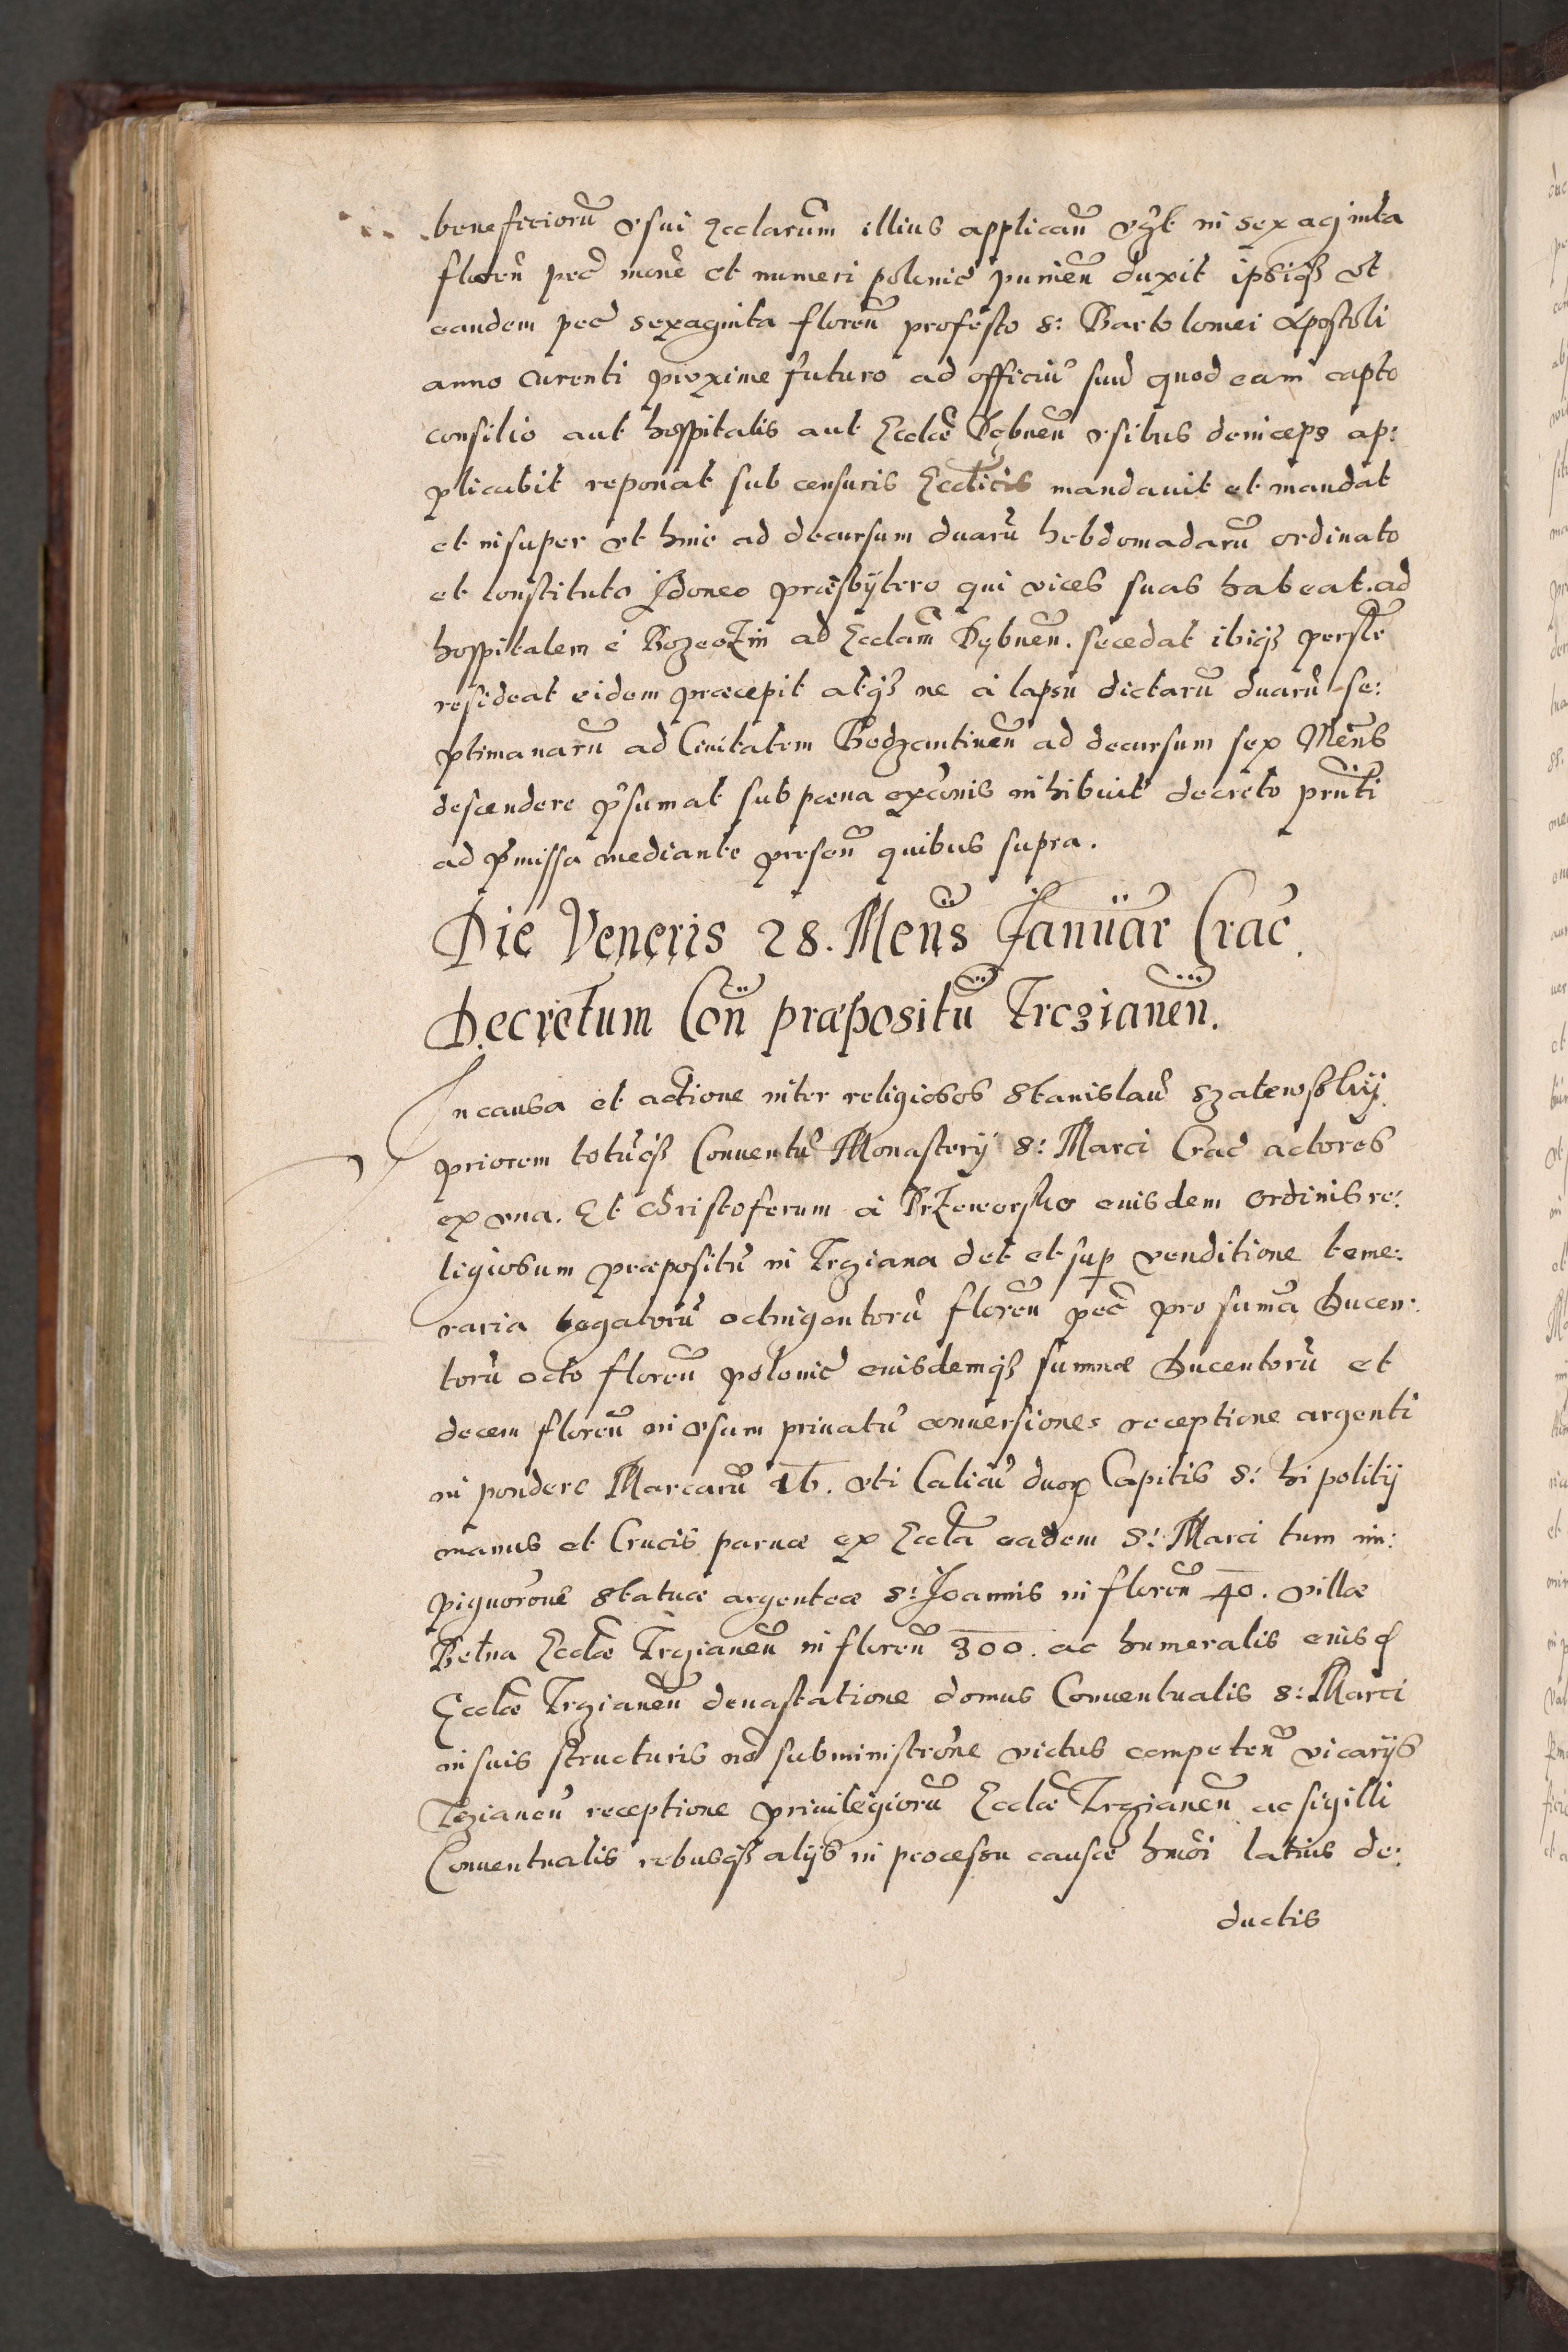 beneficiorũ vsui Ecclarum illius applicañ vƺt in sexaginta
floreñ pec̃ monẽ et numeri polonic̃ punieñ duxit ipsiqȝ vt
eandem pec̃ sexaginta floreñ profesto S: Bartolomei Apostoli
anno curenti proxime futuro ad officiũ suũ quod eam capto
consilio aut hospitalis aut Ecclæ Dębneñ vsibus deinceps ap:
plicabit reponat sub censuris Ecclticis mandauit et mandat
et insuper vt hinc ad decursum duarũ hebdomadarũ ordinato
et constituto Idoneo præsbÿtero qui vices suas habeat ad
hospitalem è Bozeczin ad Ecclam Dębneñ. secedat ibiqȝ persłr
resideat eidem præcepit atqȝ ne à lapsu dictarũ duarũ se:
ptimanarũ ad Ciuitatem Bodzantineñ ad decursum sex Meñs
descendere p̃sumat sub pæna exc̃onis inhibuit decreto prñti
ad p̃missa mediante preseñ quibus supra.
Die Veneris 28. Meñs Januar Crac̃.
Decretum Coñ præpositũ Trczianeñ.
In causa et actione inter religiosos Stanislaũ Szalewsskij
priorem totũqȝ Conuentũ Monasterÿ S: Marci Crac̃ actores
ex vna. Et Christoferum à Przeworsko eiusdem Ordinis re:
ligiosum præpositũ in Trziana det et sup venditione teme:
raria legatorũ octingentorũ floreñ pec̃ pro suma Ducen:
torũ octo floreñ polonic̃ eiusdemqȝ summæ Ducentorũ et
decem floreñ in vsum priuatũ conuersione: receptione argenti
in pondere Marcarũ 16. vti Calicũ duoꝝ Capitis S: hipolitÿ
manus et Crucis paruæ ex Eccla eadem S: Marci tum im:
pignorõne statuæ argenteæ S: Joannis in floreñ 40. villæ
Bełna Ecclæ Trzianeñ in floreñ 300. ac humeralis eiusd
Ecclæ Trzianeñ deuastatione domus Conuentualis S: Marci
in suis structuris nõ subministrõne victus competeñ vicarÿs
Trzianeñ receptione priuilegiorũ Ecclæ Trzianeñ ac sigilli
Conuentualis rebusqȝ alÿs in processu causæ hmõi latius de:
ductis